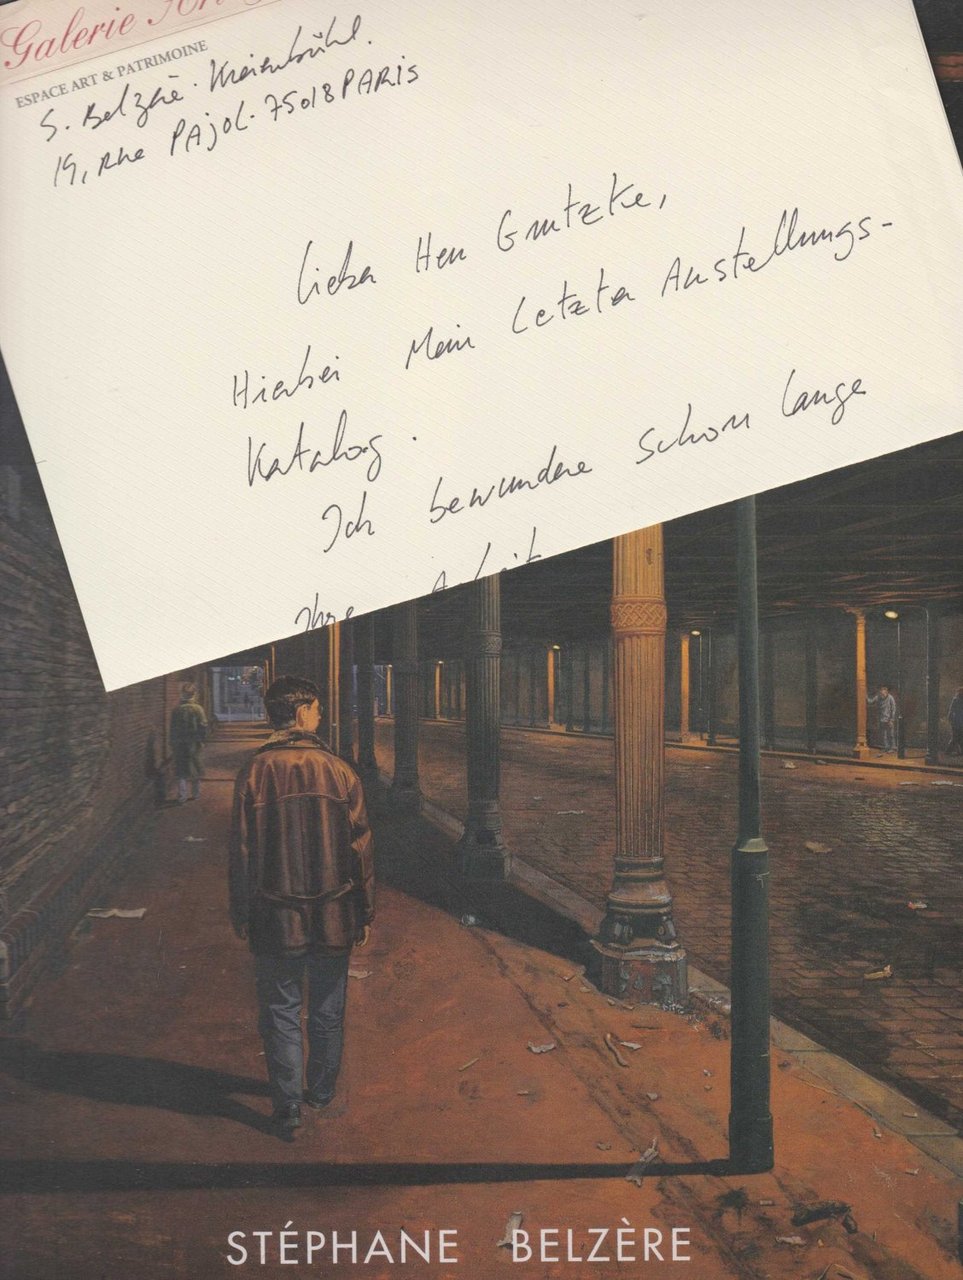 Galerie
ESPACE ART & PATRIMOINE
S. Belzère-Kreienbühl.
19, Rue PAjOL-75018 PARiS
Lieber Herr Grützke,
Hierbei Mein Letzter Austellungs-
Katalog.
Ich bewundere Schon lange
Ihre Arbeit
STÉPHANE BELZÈRE